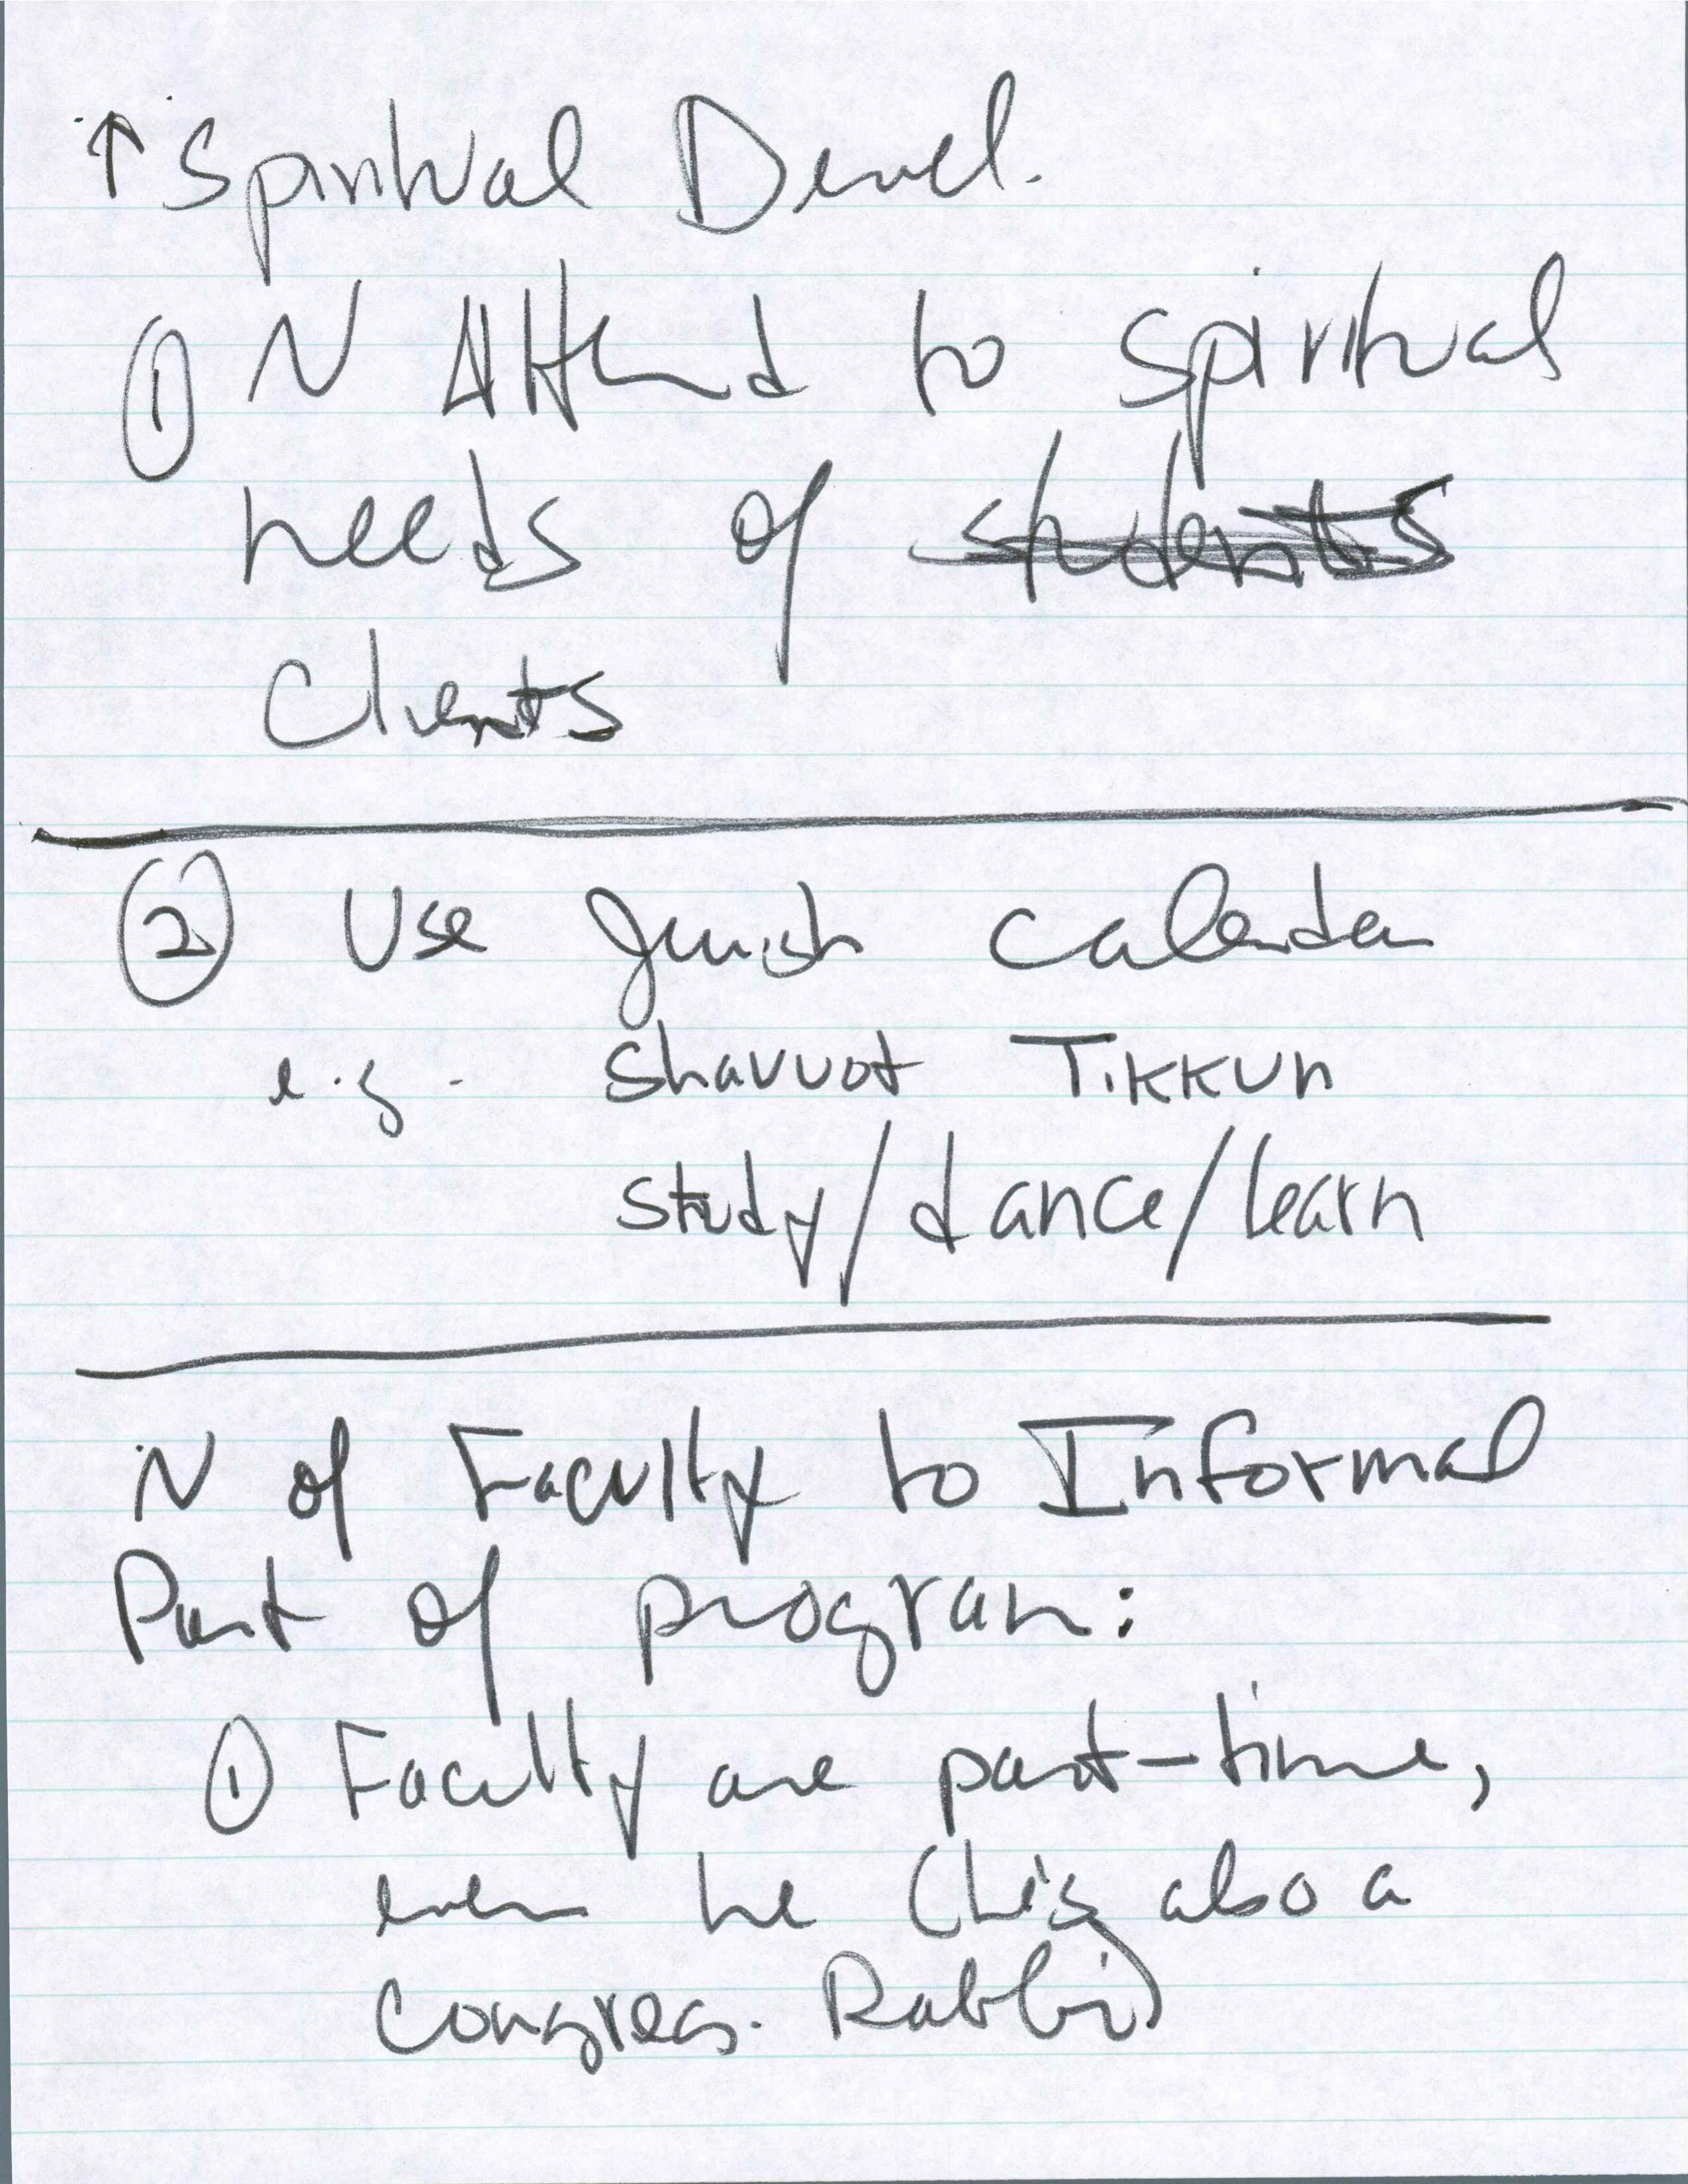 ↑ Spiritual Devel.
① N Attend to spiritual
needs of ~~students~~
Clients
② Use Jewish Calendar
e.g. Shavuot Tikkun
study/dance/learn
N of Faculty to Informal
Part of program:
① Faculty are part-time,
even he (he's also a
congreg. Rabbi)